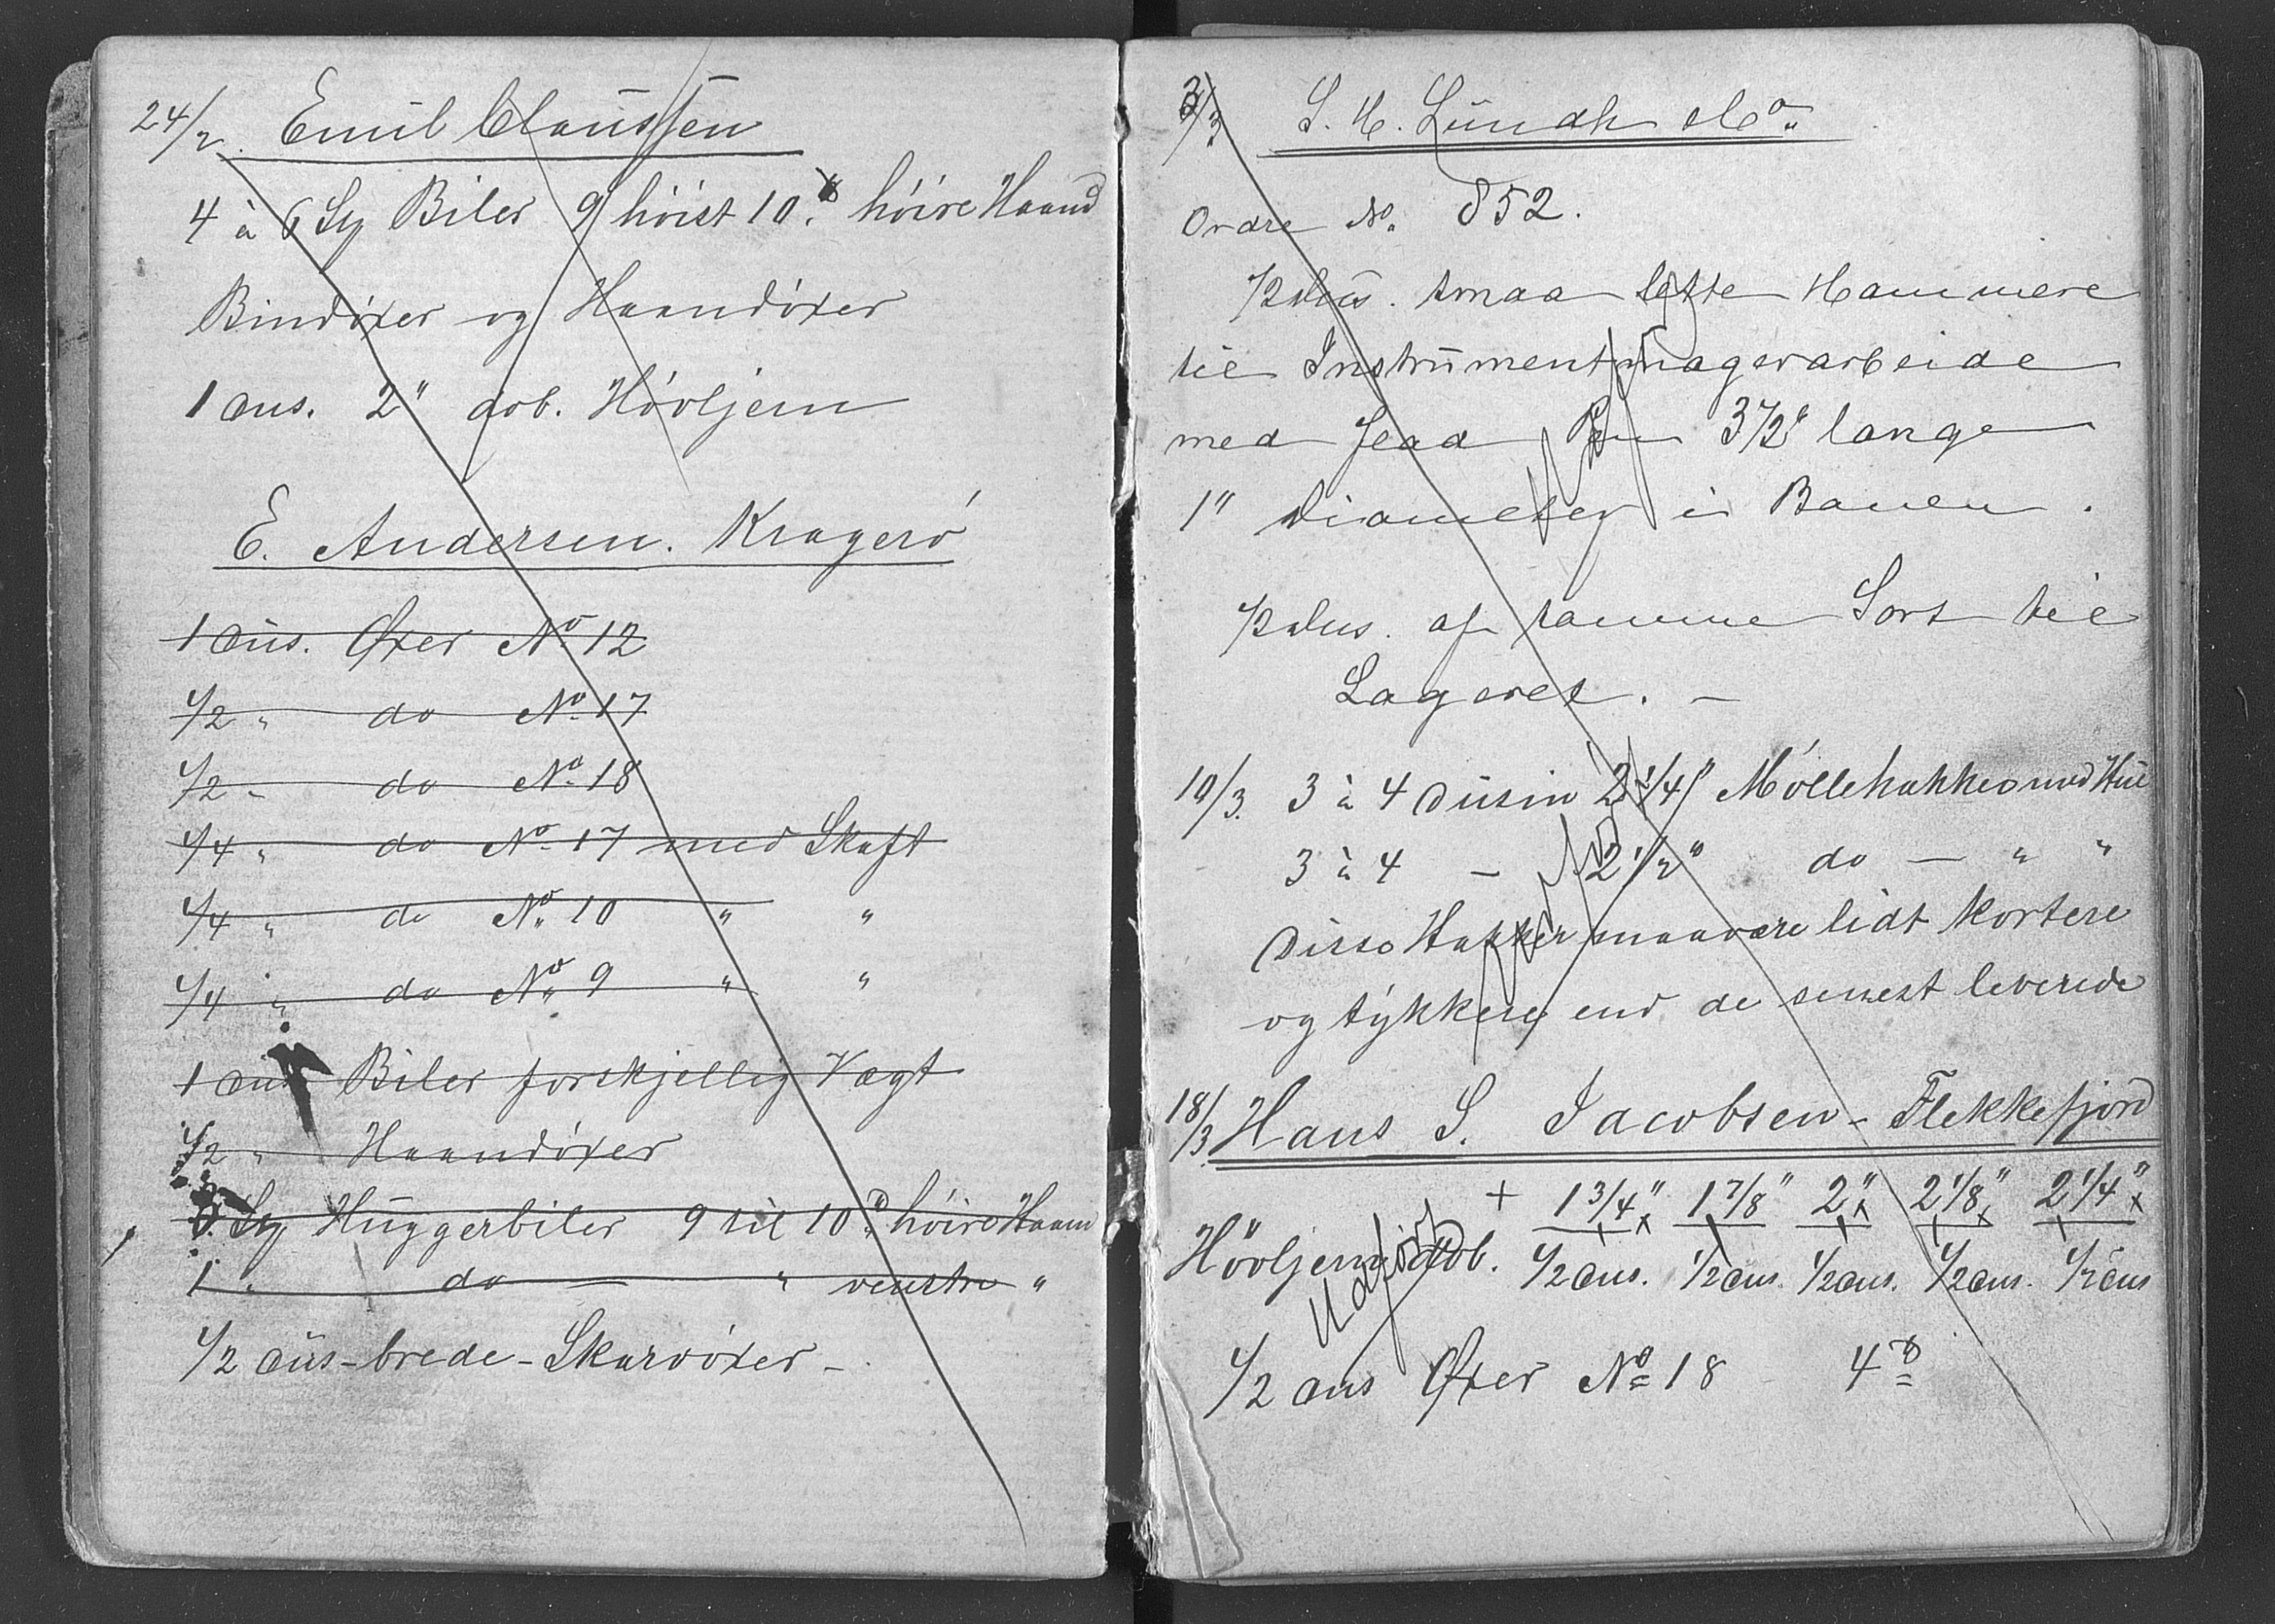 24/2. Emil Claussen
4 à 6 St Biler 9 höist 10 ℔ höire Haand
Bindöxer og Haandöxer
1 dus. 2" dob. Hövljern
E. Andersen. Kragerö
1 dus. Øxer No 12
1/2 " do No 17
1/2 " do No 18
1/4 " do No 17 med Skaft
1/4 " do No 10 " "
1/4 " do No 9 " "
1 dus Biler forskjellig Vægt
1/2 " Haandöxer
St Huggerbiler 9 til 10 ℔ höire Haand
1 " do " venstre "
1/2 dus brede Skarvöxer
3/3 S. H. Lundh & Co
Ordre No. 852.
1/2 dus. smaa lette Hammere
til Instrumentmagerarbeide
med flad Pen 3 1/2" lange
1" Diameter i Banen.
1/2 dus. af samme Sort til
Lageret. –
10/3. 3 à 4 Dusin 2 1/4" Möllehakker med Hul
3 à 4 – 2 1/2" do – " "
Disse Hakker maa være lidt kortere
og tykkere end de senest leverede
18/3. Hans S. Jacobsen – Flekkefjord
+ 1 3/4" 1 7/8" 2" 2 1/8" 2 1/4"
Hövljern dob. 1/2 dus. 1/2 dus. 1/2 dus. 1/2 dus. 1/2 dus
Udført
1/2 dus Øxer No 18 4 ℔